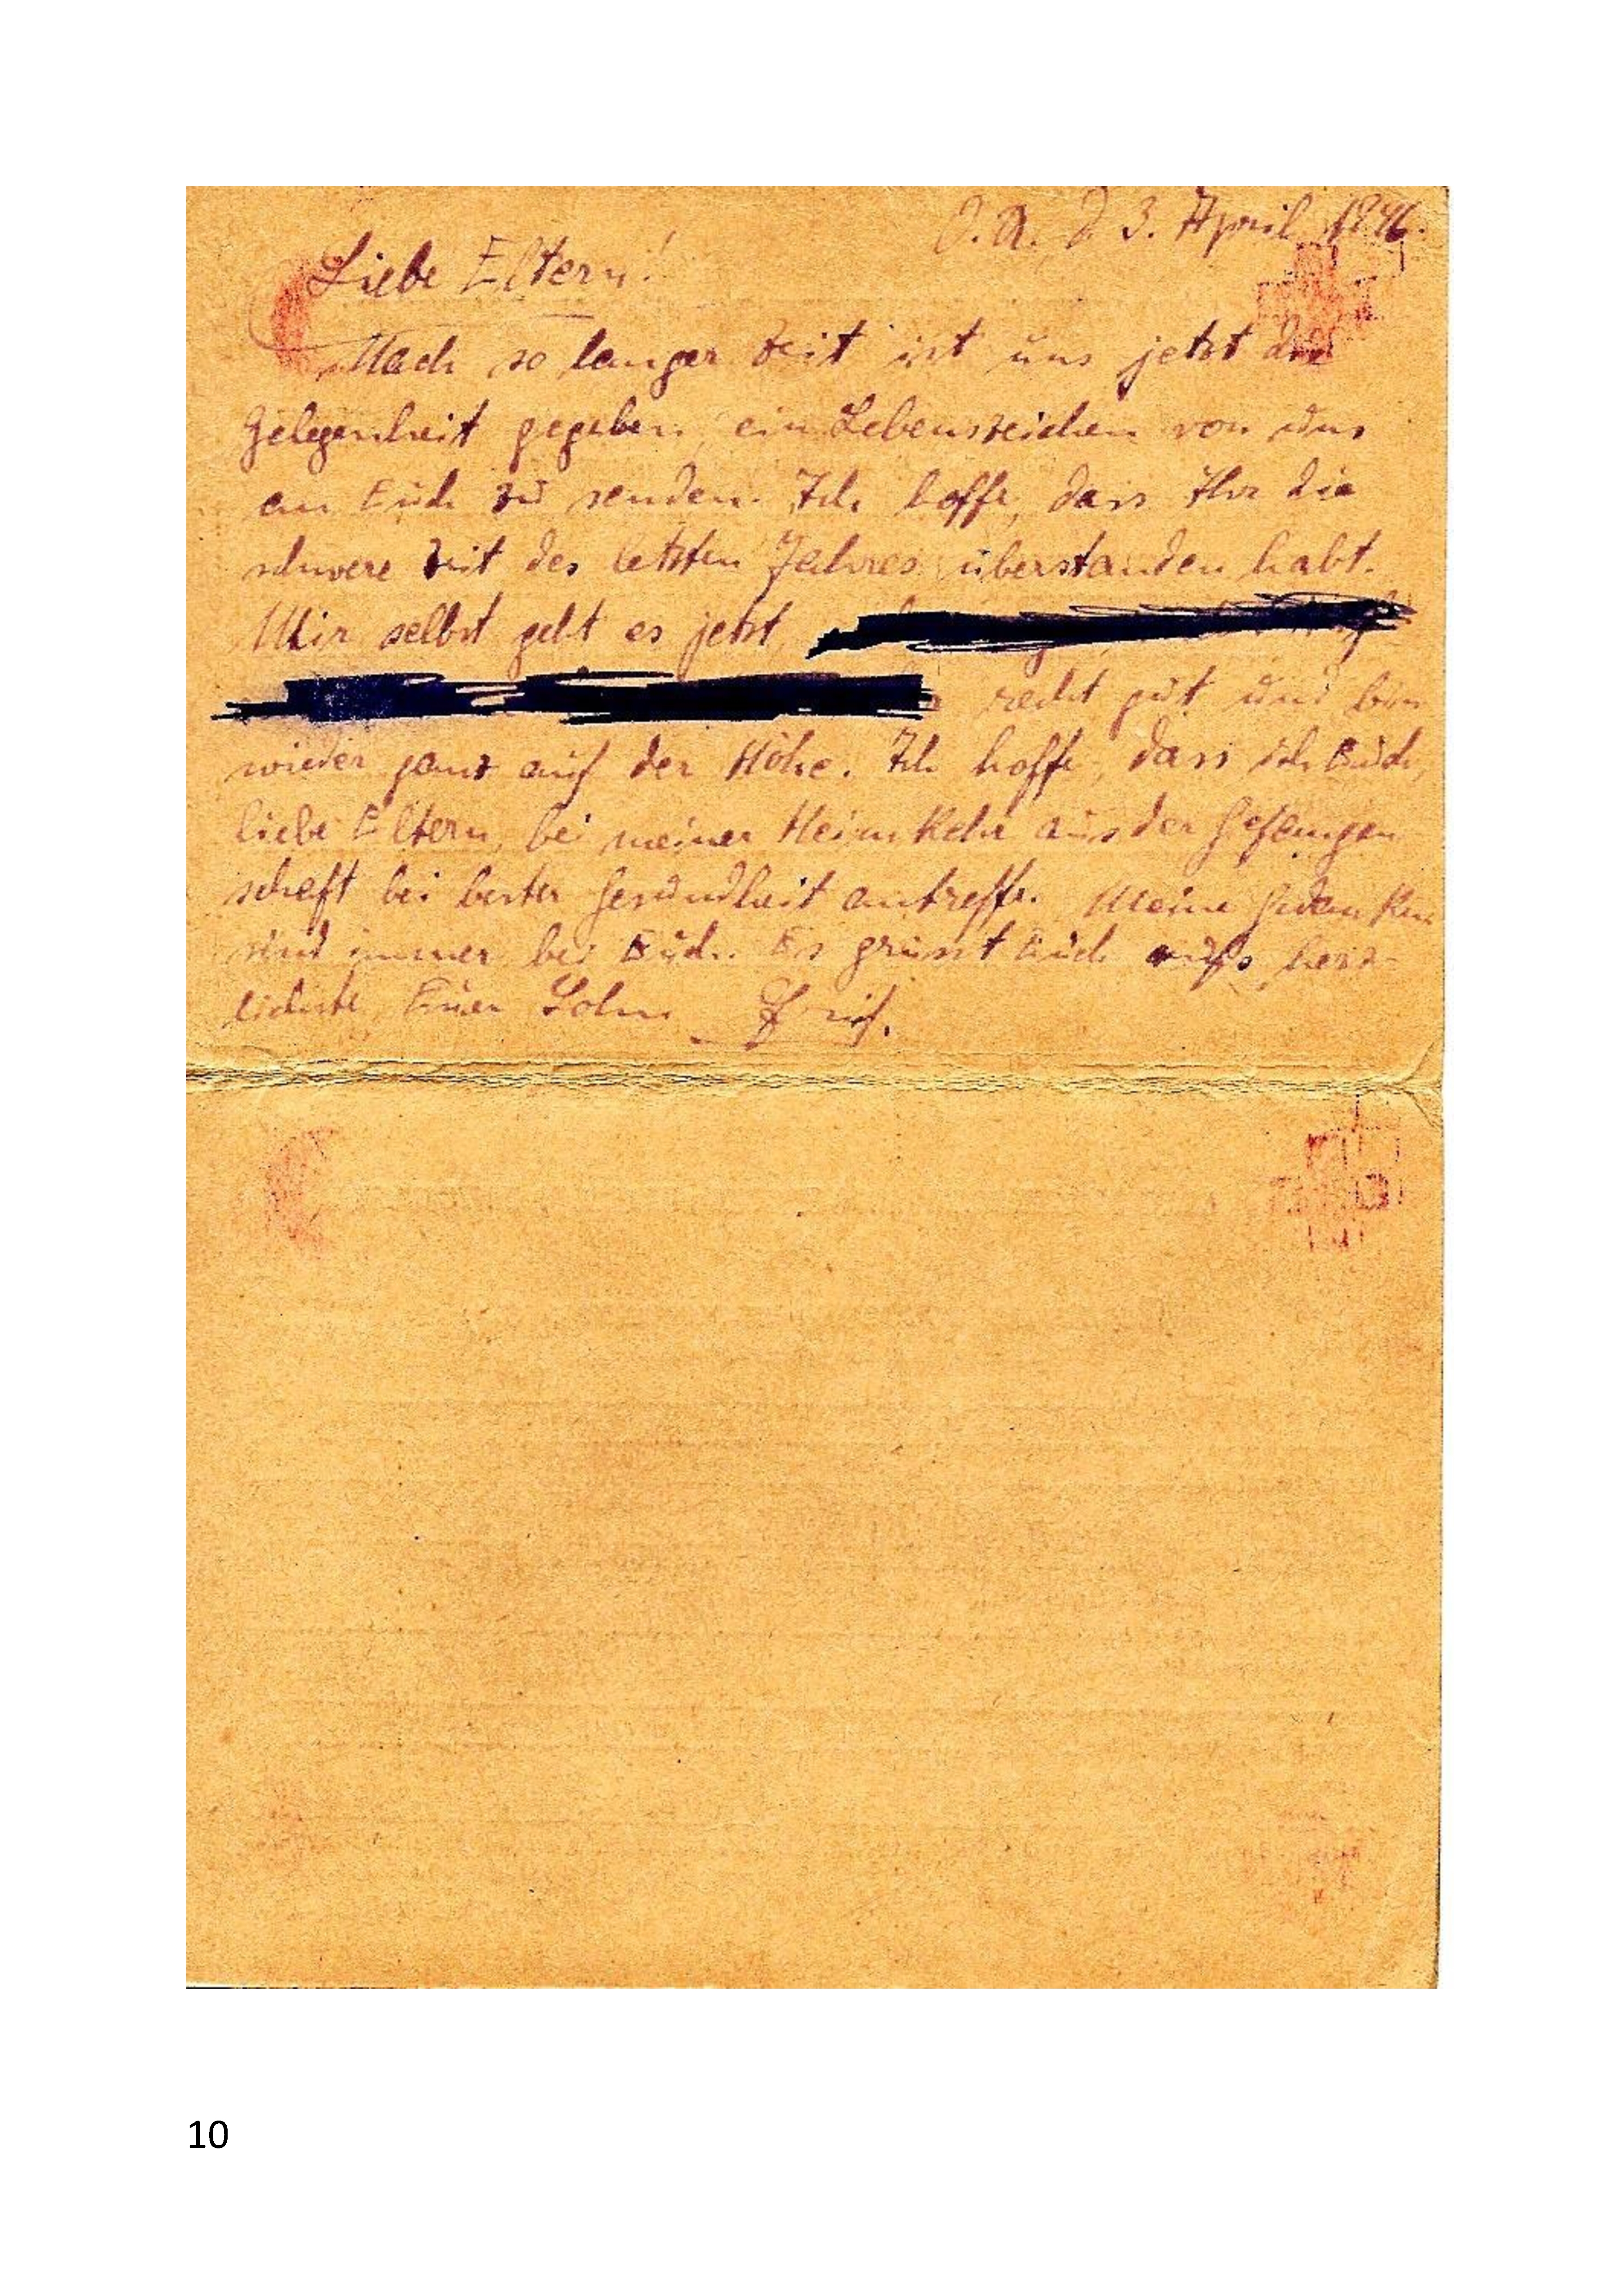 O. A. d 3. April 1946.
Liebe Eltern!
Nach so langer Zeit ist uns jetzt die
Gelegenheit gegeben, ein Lebenszeichen von uns
an Euch zu senden. Ich hoffe, dass Ihr die
schwere Zeit des letzten Jahres überstanden habt.
Mir selbst geht es jetzt,
recht gut und bin
wieder ganz auf der Höhe. Ich hoffe, dass ich Euch,
liebe Eltern, bei meiner Heimkehr aus der Gefangen
schaft bei bester Gesundheit antreffe. Meine Gedanken
sind immer bei Euch. Es grüsst Euch aufs herz-
lichste Euer Sohn
10